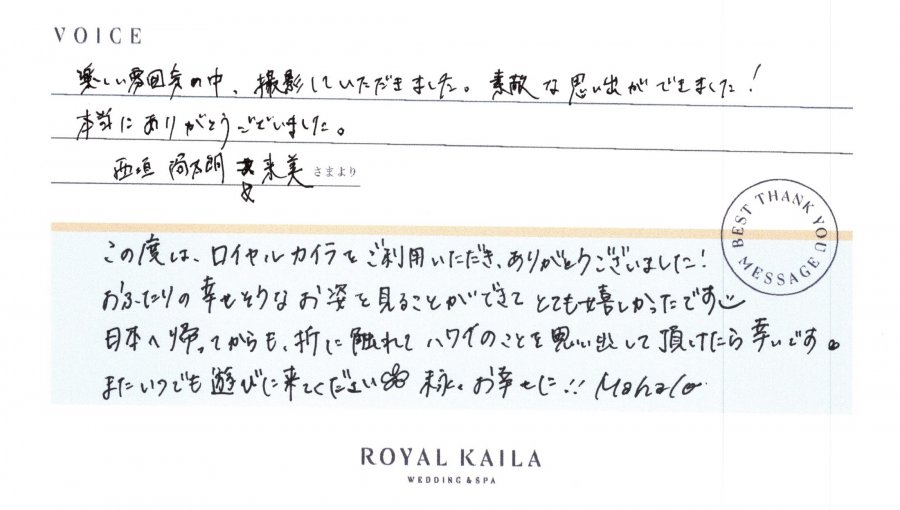 VOICE
楽しい雰囲気の中、撮影していただきました。素敵な思い出ができました!
本当にありがとうございました。
西垣 来美 さまより
BEST THANK YOU MESSAGE
この度は、ロイヤルカイラをご利用いただき、ありがとうございました!
おふたりの幸せそうなお姿を見ることができてとても嬉しかったです
日本へ帰ってからも、折に触れてハワイのことを思い出して頂けたら幸いです。
またいつでも遊びに来てください 末永くお幸せに!! Mahalo
ROYAL KAILA
WEDDING & SPA